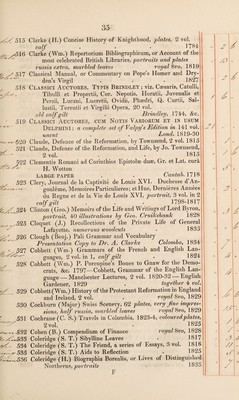 35
515 Clarke (H.) Concise History of Knighthood, plates. 2 vol.
calf 1784
516 Clarke (Wm.) Repertorium Bibliographicum, or Account of the
most celebrated British Libraries, portraits and plates
russia extra, marbled leaves royal 8vo, 1819
517 Classical Manual, or Commentary on Pope's Homer and Dry-
den's Virgil 1827
518 CLASSICI AUCTORES, TYPIS BRINDLEY; viz. Cæsaris, Catulli,
Tibulli et Propertii, Cor. Nepotis, Horatii, Juvenalis et
Persii, Lucani, Lucretii, Ovidii, Phædri, Q. Curtii, Sal-
lustii, Terentii et Virgilii Opera, 20 vol.
old calf gilt Brindley, 1744, &c.
519 CLASSICI AUCTORES, CUM NOTIS VARIORUM ET IN USUM
DELPHINI; a complete set of Valpy's Edition in 141 vol.
uncut Lond. 1819-30
520 Claude, Defence of the Reformation, by Townsend, 2 vol. 1815
521 Claude, Defence of the Reformation, and Life, by Jo. Townsend,
2 vol. 1815
522 Clementis Romani ad Corinthios Epistolæ duæ, Gr. et Lat. curâ
H. Wotton
LARGE PAPER Cantab. 1718
523 Clery, Journal de la Captivité de Louis XVI. Duchesse d'An-
goulème, Memoires Particulieres; et Hue, Dernières Années
du Regne et de la Vie de Louis XVI. portrait, 3 vol. in 2
calf gilt 1798-1817
524 Clinton (Geo.) Memoirs of the Life and Writings of Lord Byron,
portrait, 40 illustrations by Geo. Cruikshank 1828
525 Cloquet (J.) Recollections of the Private Life of General
Lafayette, numerous woodcuts 1835
526 Clough (Benj.) Pali Grammar and Vocabulary
Presentation Copy to Dr. A. Clarke Colombo, 1824
527 Cobbett (Wm.) Grammars of the French and English Lan-
guages, 2 vol. in 1, calf gilt 1824
528 Cobbett (Wm.) P. Porcupine's Bones to Gnaw for the Demo-
crats, &c. 1797—Cobbett, Grammar of the English Lan-
guage — Manchester Lectures, 2 vol. 1820-32 — English
Gardener, 1829 together 4 vol.
529 Cobbett (Wm.) History of the Protestant Reformation in England
and Ireland, 2 vol. royal 8vo, 1829
530 Cockburn (Major) Swiss Scenery, 62 plates, very fine impres-
sions, half russia, marbled leaves royal 8vo, 1820
531 Cochrane (C. S.) Travels in Colombia, 1823-4, coloured plates,
2 vol. 1825
532 Cohen (B.) Compendium of Finance royal 8vo, 1828
533 Coleridge (S. T.) Sibylline Leaves 1817
534 Coleridge (S. T.) The Friend, a series of Essays, 3 vol. 1818
535 Coleridge (S. T.) Aids to Reflection 1825
536 Coleridge (H.) Biographia Borealis, or Lives of Distinguished
Northerns, portraits 1833
F